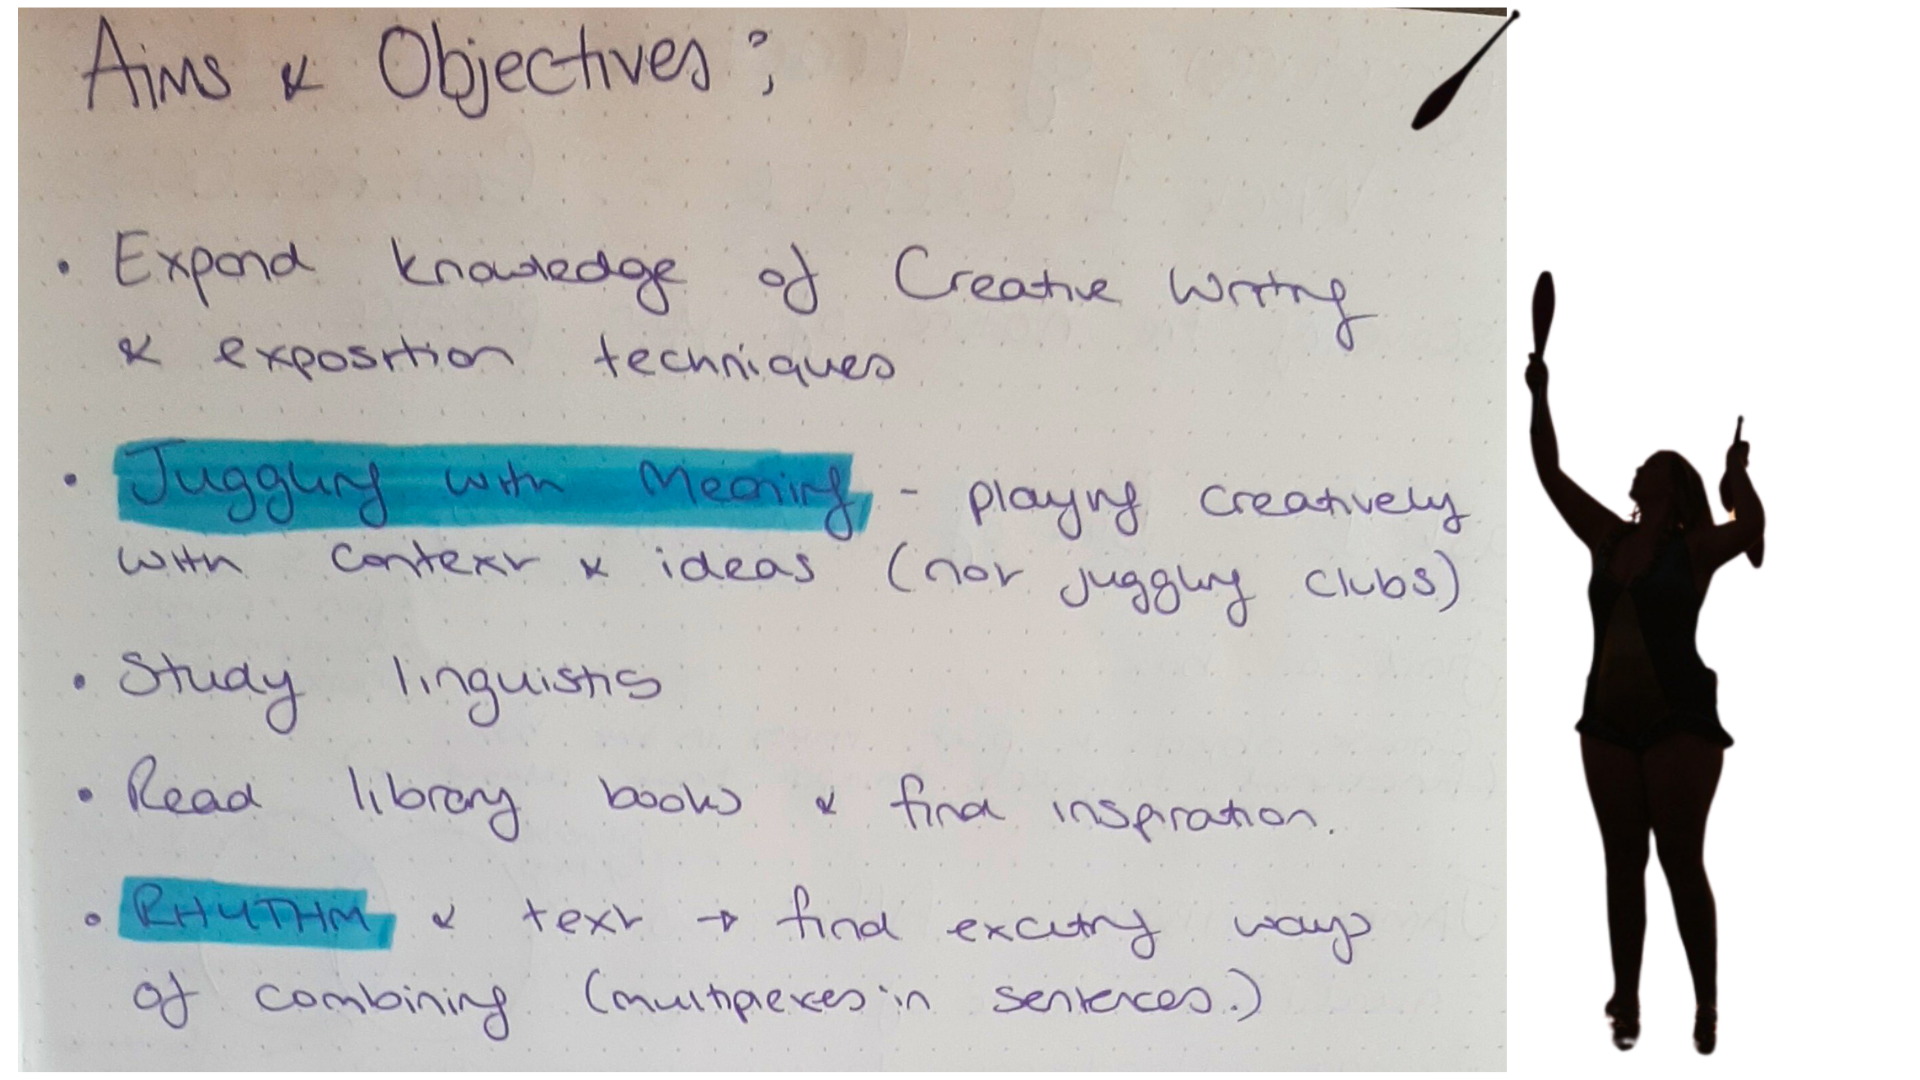 Aims & Objectives:
• Expand knowledge of Creative Writing
& exposition techniques
• Juggling with Meaning - playing creatively
with context & ideas (not juggling clubs)
• Study linguistics
• Read library books & find inspiration.
• RHYTHM & text → find exciting ways
of combining (multiplexes in sentences.)